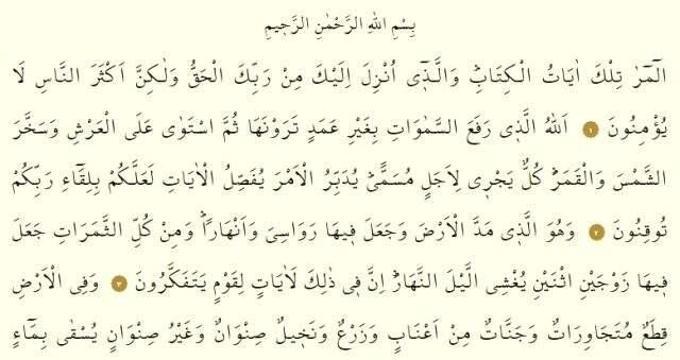 بِسْمِ اللهِ الرَّحْمٰنِ الرَّحٖيمِ
الٓمٓرٰ تِلْكَ اٰيَاتُ الْكِتَابِؕ وَالَّذٖٓى اُنْزِلَ اِلَيْكَ مِنْ رَبِّكَ الْحَقُّ وَلٰكِنَّ اَكْثَرَ النَّاسِ لَا
يُؤْمِنُونَ ١ اَللهُ الَّذٖى رَفَعَ السَّمٰوَاتِ بِغَيْرِ عَمَدٍ تَرَوْنَهَا ثُمَّ اسْتَوٰى عَلَى الْعَرْشِ وَسَخَّرَ
الشَّمْسَ وَالْقَمَرَؕ كُلٌّ يَجْرٖى لِاَجَلٍ مُسَمًّىؕ يُدَبِّرُ الْاَمْرَ يُفَصِّلُ الْاٰيَاتِ لَعَلَّكُمْ بِلِقَٓاءِ رَبِّكُمْ
تُوقِنُونَ ٢ وَهُوَ الَّذٖى مَدَّ الْاَرْضَ وَجَعَلَ فٖيهَا رَوَاسِىَ وَاَنْهَارًاؕ وَمِنْ كُلِّ الثَّمَرَاتِ جَعَلَ
فٖيهَا زَوْجَيْنِ اثْنَيْنِ يُغْشِى الَّيْلَ النَّهَارَؕ اِنَّ فٖى ذٰلِكَ لَاٰيَاتٍ لِقَوْمٍ يَتَفَكَّرُونَ ٣ وَفِى الْاَرْضِ
قِطَعٌ مُتَجَاوِرَاتٌ وَجَنَّاتٌ مِنْ اَعْنَابٍ وَزَرْعٌ وَنَخٖيلٌ صِنْوَانٌ وَغَيْرُ صِنْوَانٍ يُسْقٰى بِمَٓاءٍ